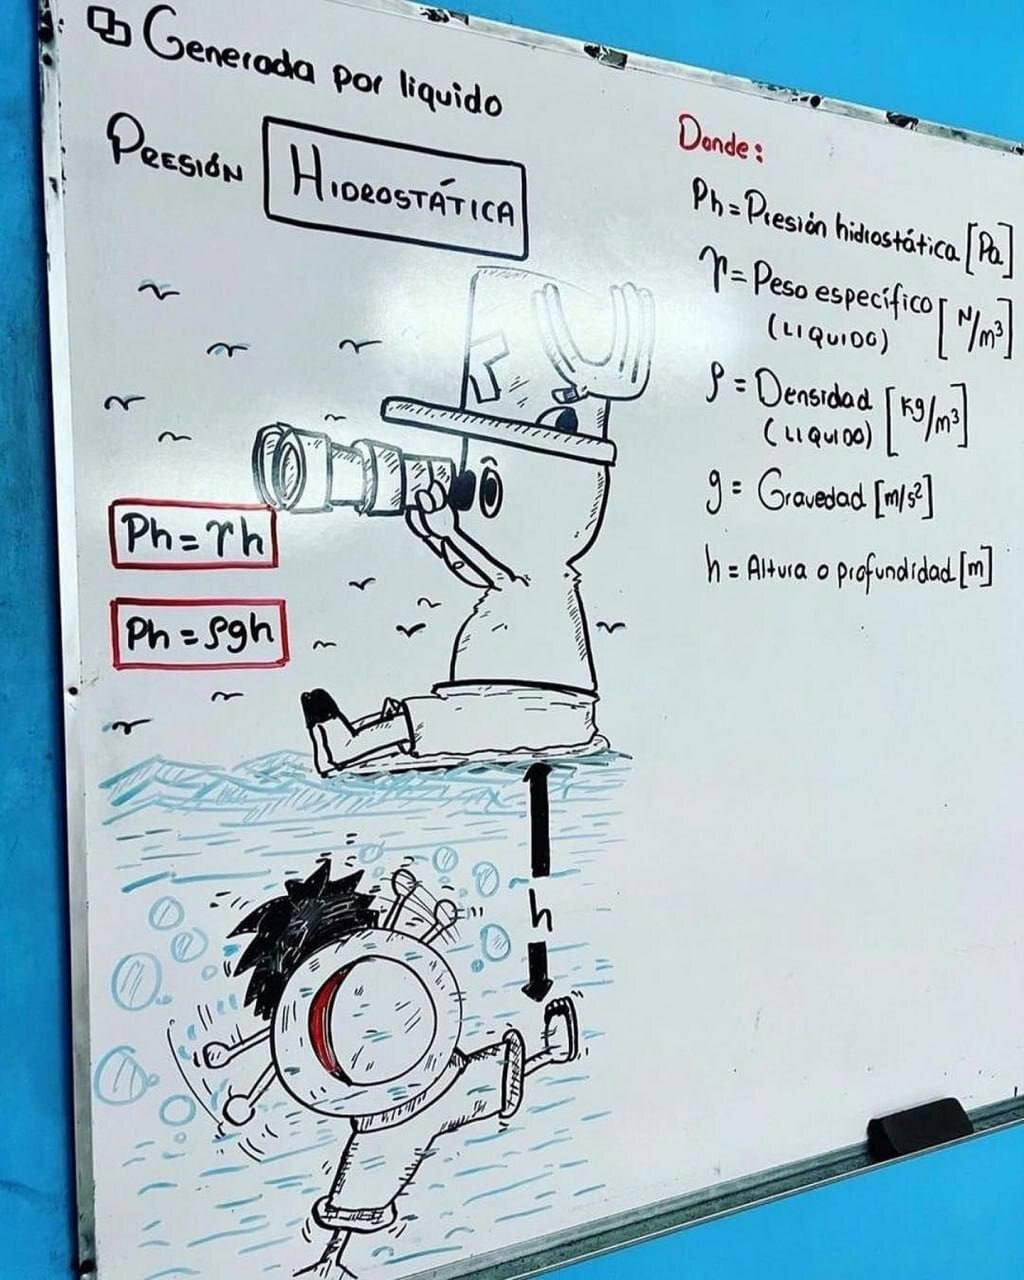 Generada por liquido
PRESIÓN HIDROSTÁTICA
Ph=γh
Ph=ρgh
h
Donde:
Ph=Presión hidrostática [Pa]
γ=Peso específico [N/m³]
(LIQUIDO)
ρ = Densidad [Kg/m³]
(LIQUIDO)
g = Gravedad [m/s²]
h = Altura o profundidad [m]